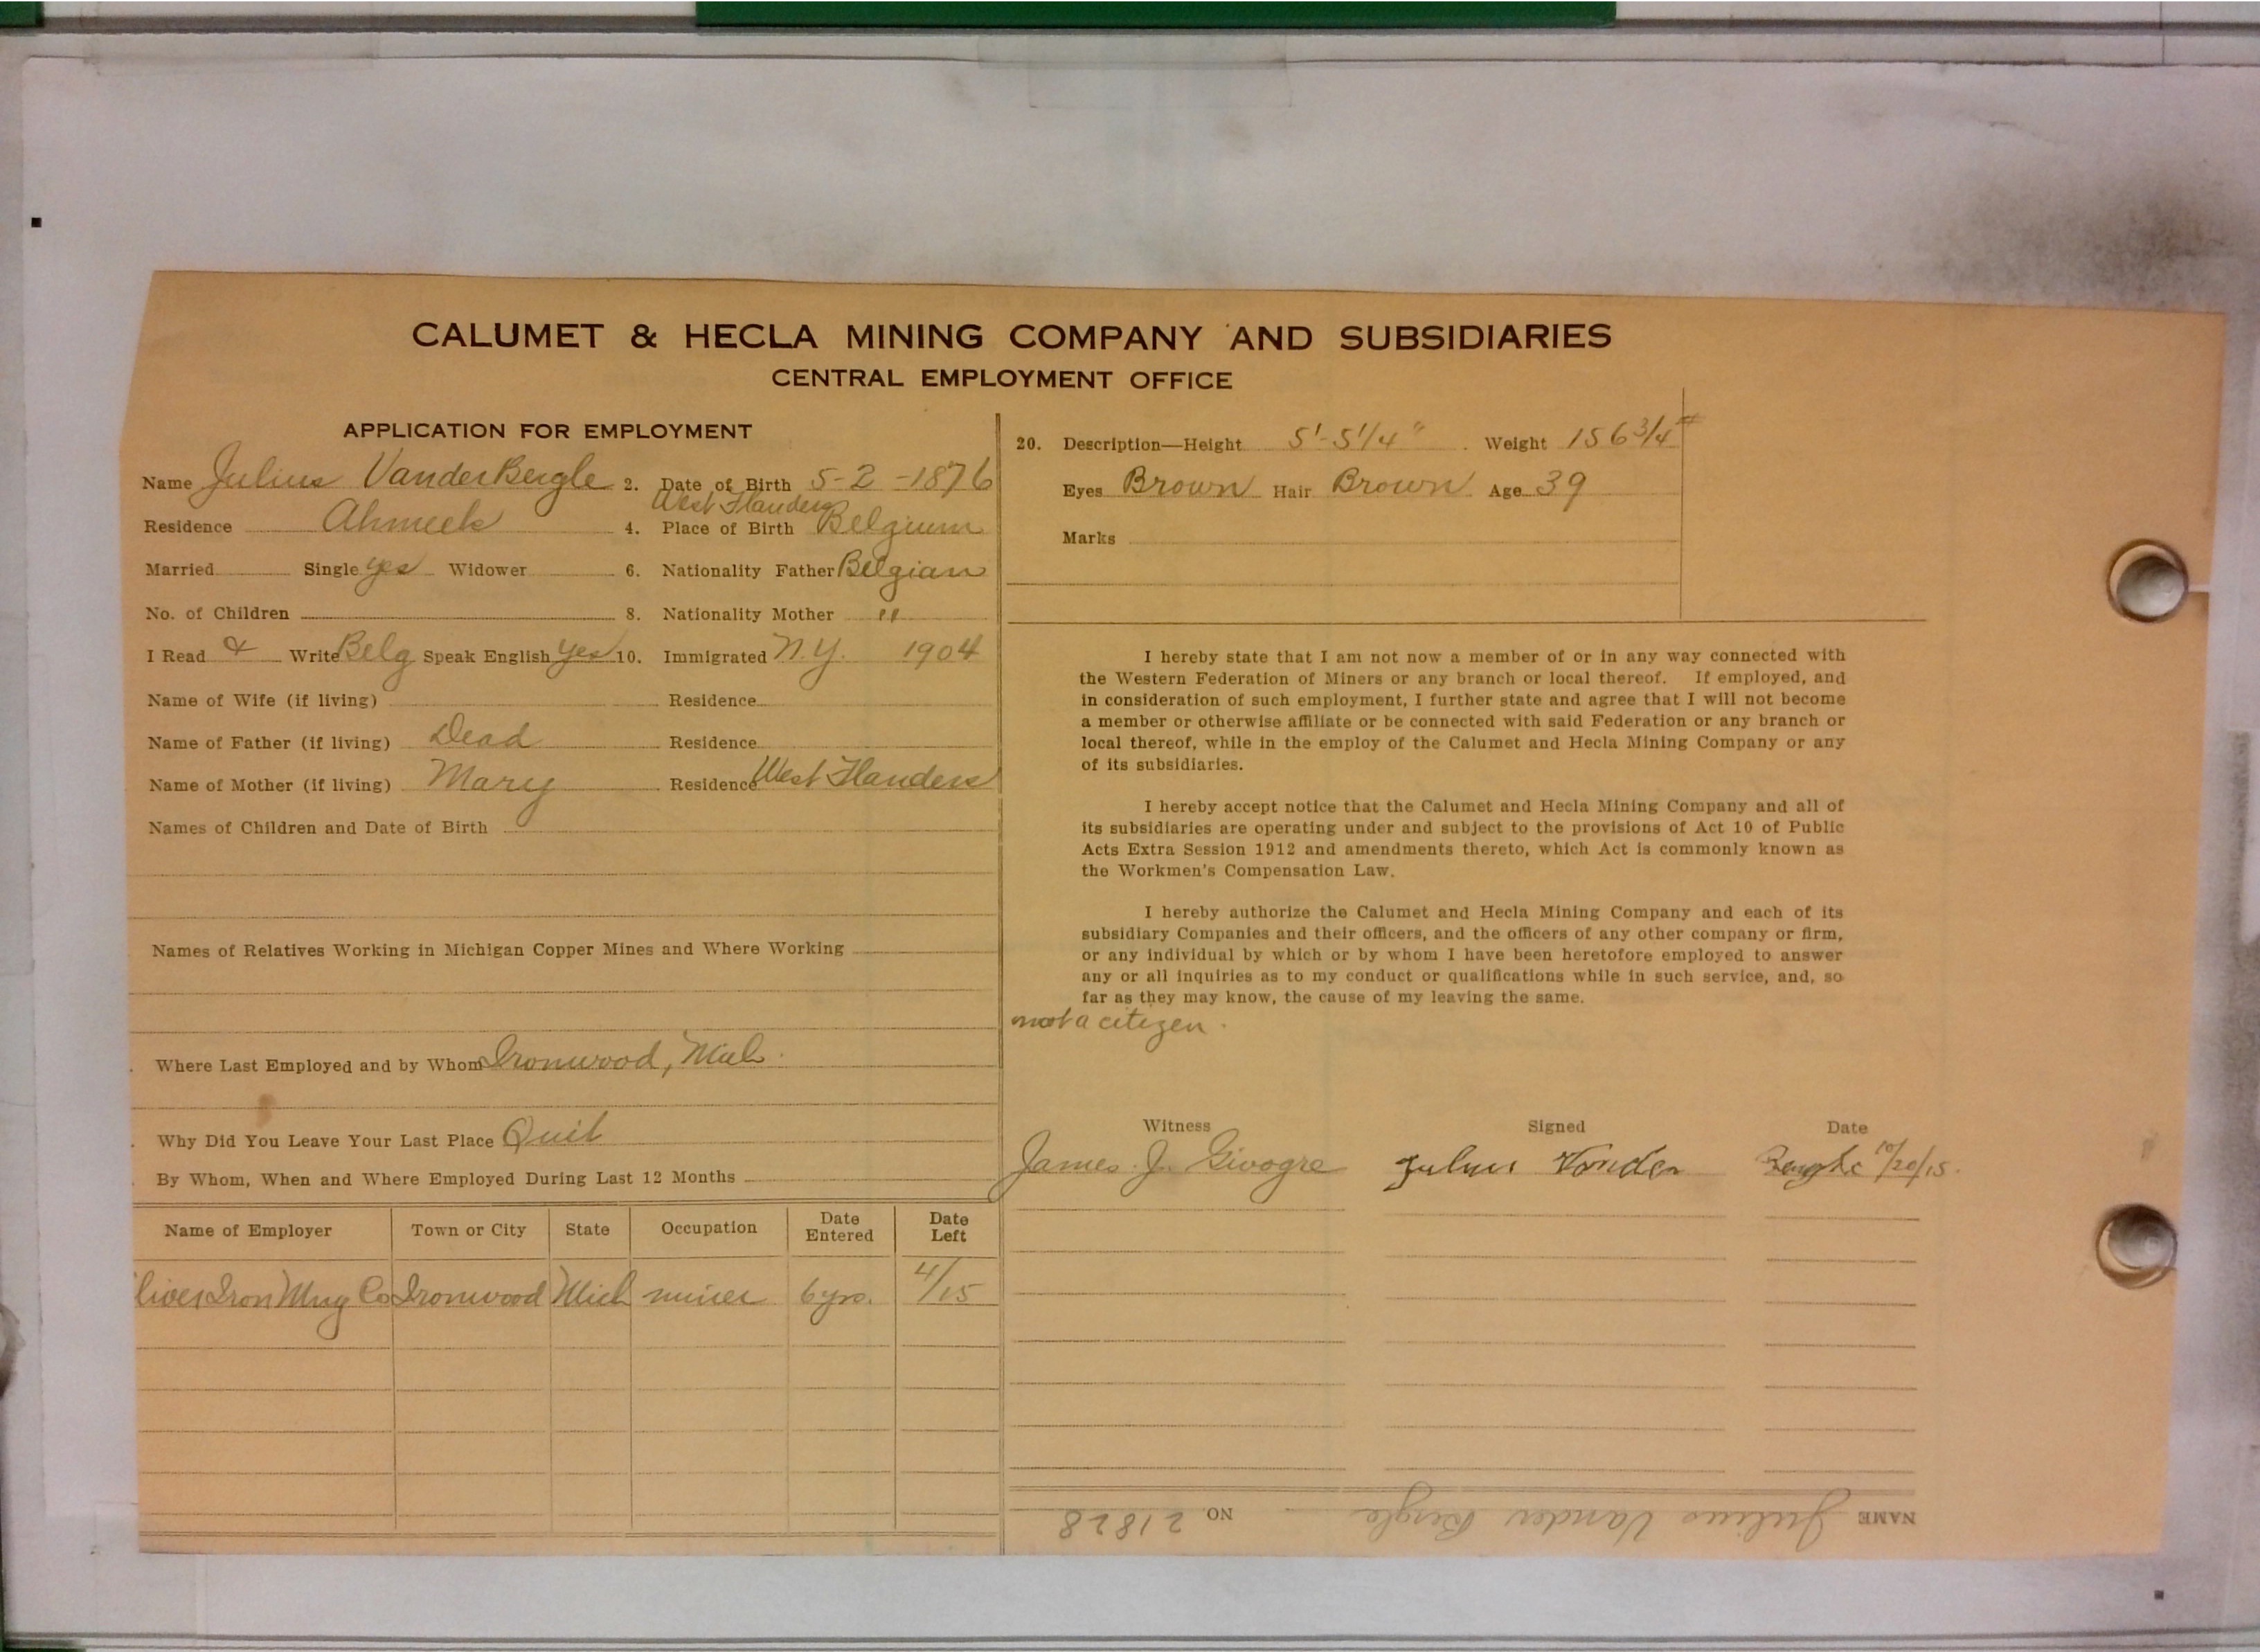 CALUMET & HECLA MINING COMPANY AND SUBSIDIARIES
CENTRAL EMPLOYMENT OFFICE
APPLICATION FOR EMPLOYMENT
Name Julius VanderBergle 2. Date of Birth 5-2-1876
West Flanders
Residence Ahmeek 4. Place of Birth Belgium
Married Single yes Widower 6. Nationality Father Belgian
No. of Children 8. Nationality Mother "
I Read & Write Belg Speak English yes 10. Immigrated N.Y. 1904
Name of Wife (if living) Residence
Name of Father (if living) Dead Residence
Name of Mother (if living) Mary Residence West Flanders
Names of Children and Date of Birth
Names of Relatives Working in Michigan Copper Mines and Where Working
Where Last Employed and by Whom Ironwood, Mich.
Why Did You Leave Your Last Place Quit
By Whom, When and Where Employed During Last 12 Months
Name of Employer Town or City State Occupation Date Entered Date Left
liver Iron Mng Co Ironwood Mich miner 6 yrs. 4/15
20. Description—Height 5'-5 1/4" Weight 156 3/4 #
Eyes Brown Hair Brown Age 39
Marks
I hereby state that I am not now a member of or in any way connected with
the Western Federation of Miners or any branch or local thereof. If employed, and
in consideration of such employment, I further state and agree that I will not become
a member or otherwise affiliate or be connected with said Federation or any branch or
local thereof, while in the employ of the Calumet and Hecla Mining Company or any
of its subsidiaries.
I hereby accept notice that the Calumet and Hecla Mining Company and all of
its subsidiaries are operating under and subject to the provisions of Act 10 of Public
Acts Extra Session 1912 and amendments thereto, which Act is commonly known as
the Workmen's Compensation Law.
I hereby authorize the Calumet and Hecla Mining Company and each of its
subsidiary Companies and their officers, and the officers of any other company or firm,
or any individual by which or by whom I have been heretofore employed to answer
any or all inquiries as to my conduct or qualifications while in such service, and, so
far as they may know, the cause of my leaving the same.
not a citizen.
Witness Signed Date
James J. Julius Vander 10/20/15.
NAME Julius Vander Bergle NO. 21828